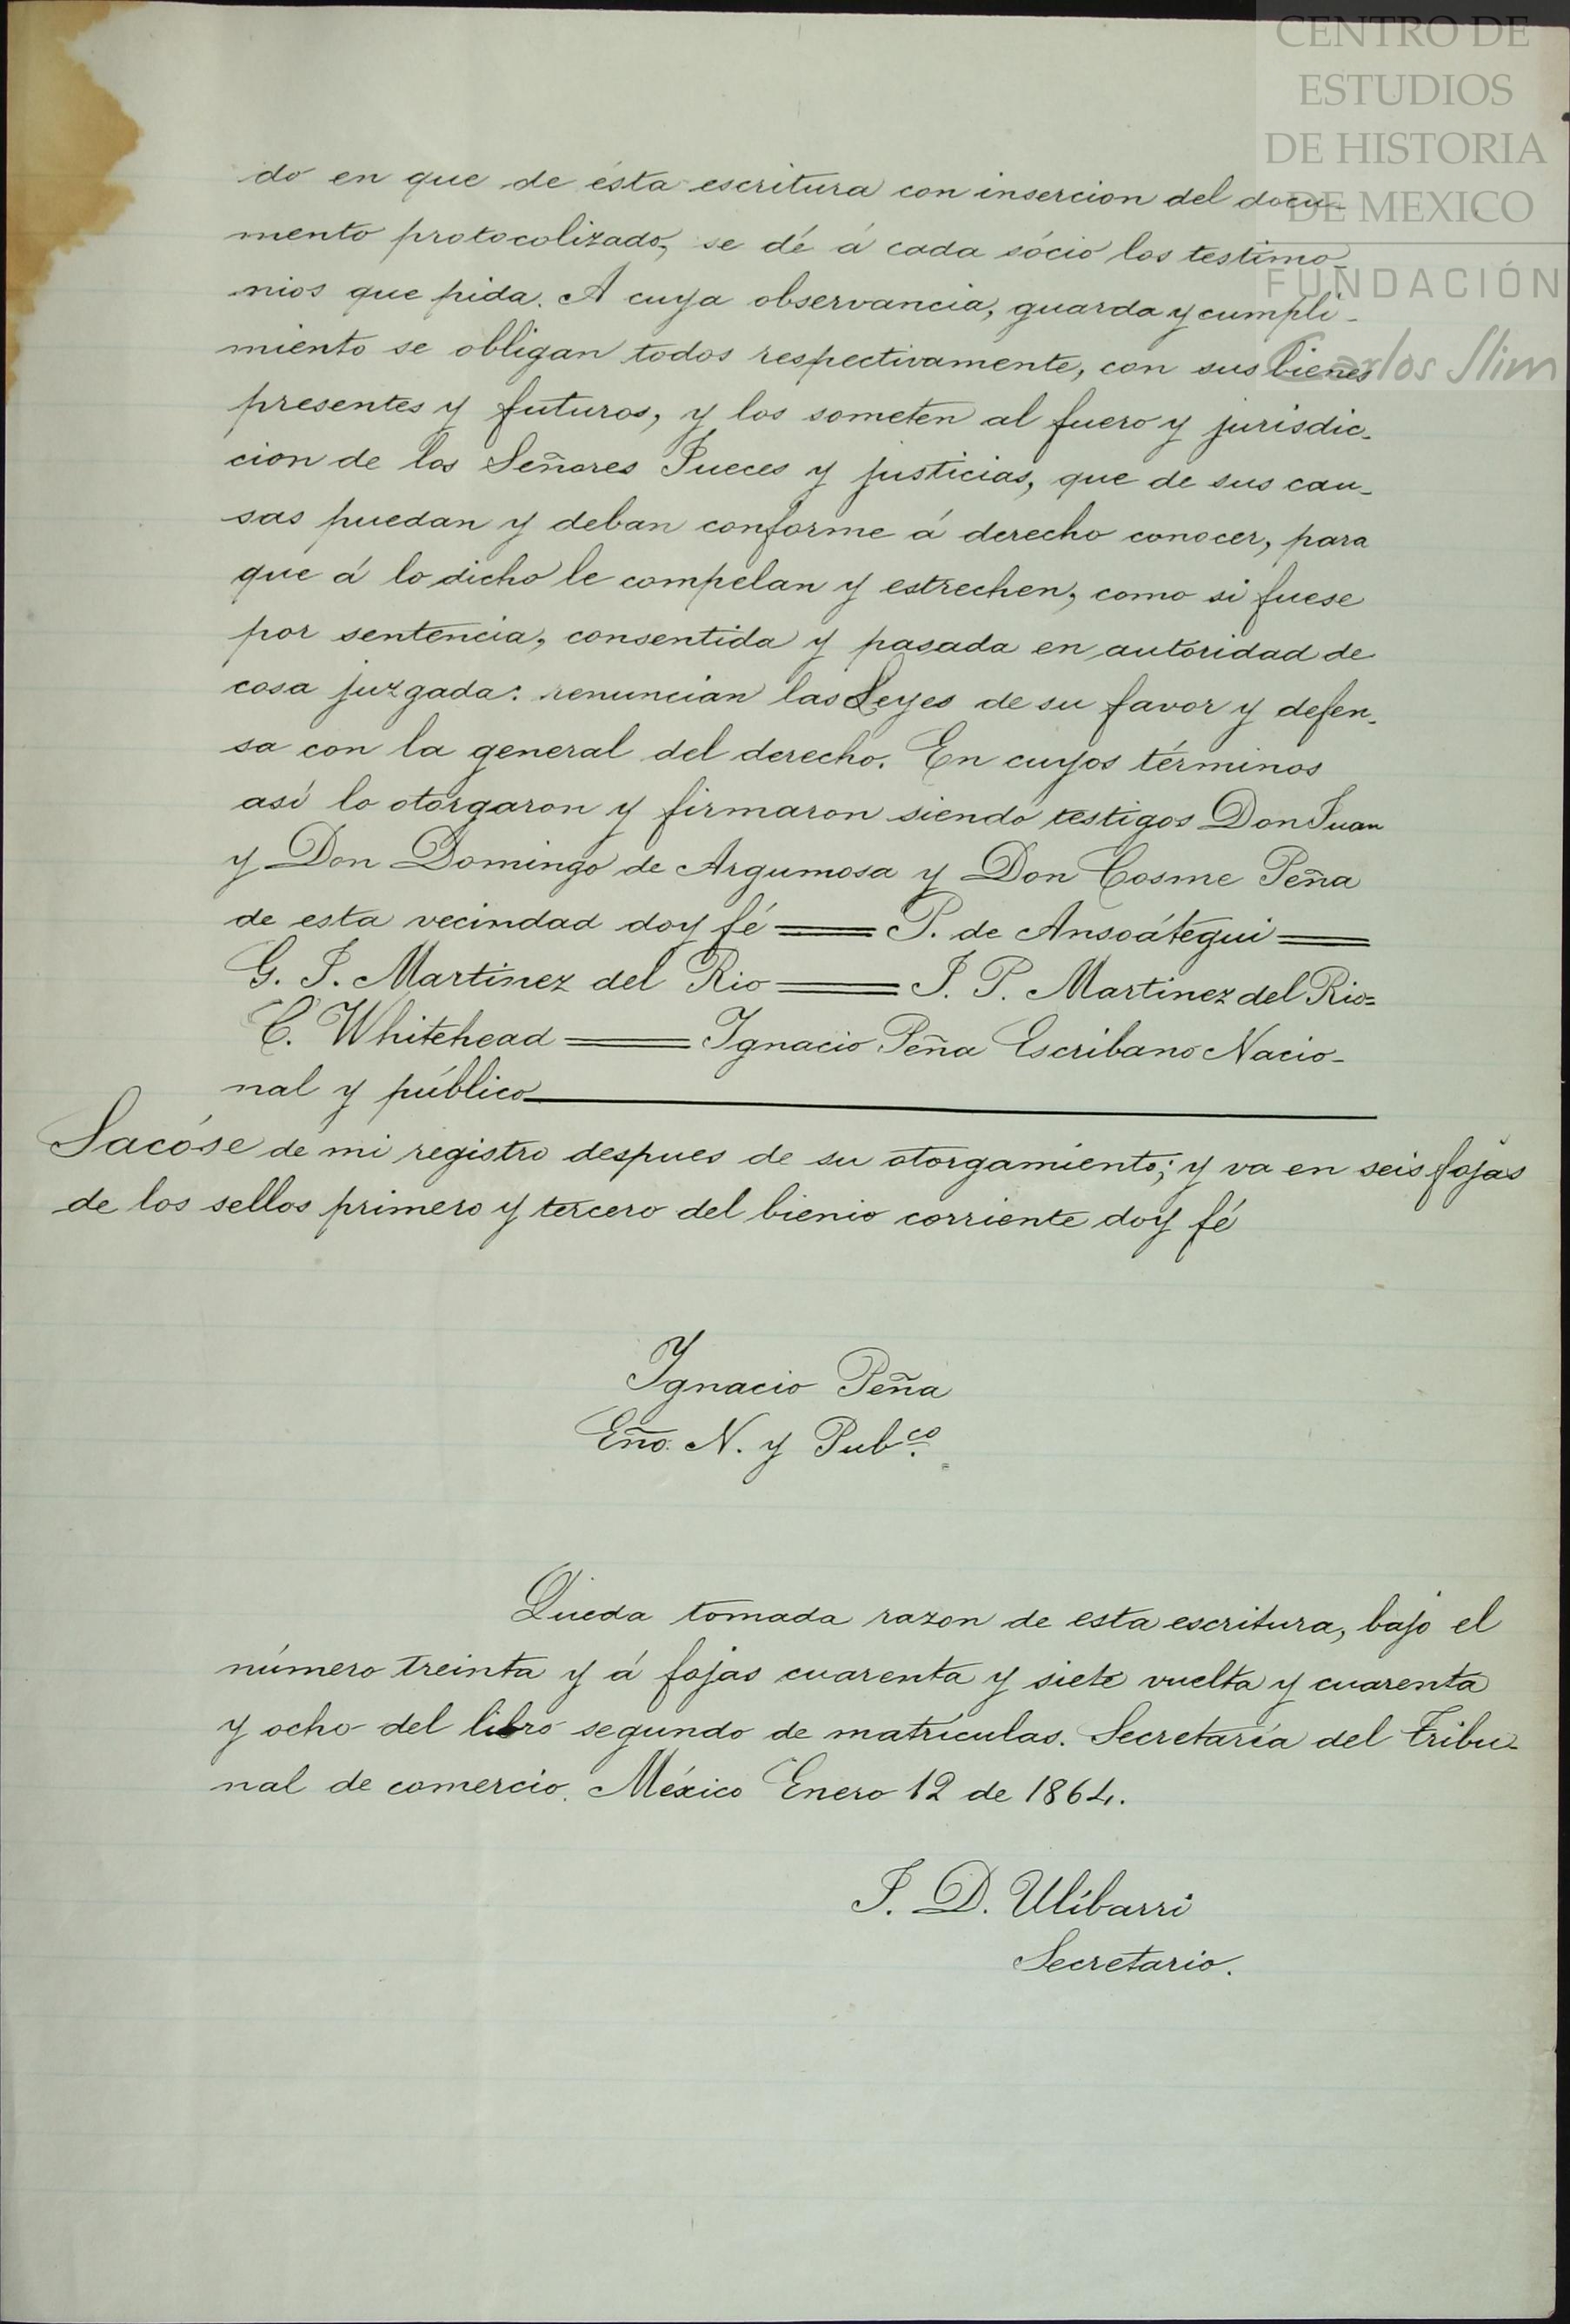 CENTRO DE
ESTUDIOS
DE HISTORIA
DE MEXICO
FUNDACIÓN
Carlos Slim
do en que de ésta escritura con insercion del docu-
mento protocolizado, se dé á cada sócio los testimo-
nios que pida. A cuya observancia, guarda y cumpli-
miento se obligan todos respectivamente, con sus bienes
presentes y futuros, y los someten al fuero y jurisdic-
cion de los Señores Jueces y justicias, que de sus cau-
sas puedan y deban conforme á derecho conocer, para
que á lo dicho le compelan y estrechen, como si fuese
por sentencia, consentida y pasada en autoridad de
cosa juzgada: renuncian las Leyes de su favor y defen-
sa con la general del derecho. En cuyos términos
así lo otorgaron y firmaron siendo testigos Don Juan
y Don Domingo de Argumosa y Don Cosme Peña
de esta vecindad doy fé == P. de Ansoátegui ==
G. J. Martinez del Rio == J. P. Martinez del Rio=
C. Whitehead == Ignacio Peña Escribano Nacio-
nal y público
Sacóse de mi registro despues de su otorgamiento; y va en seis fojas
de los sellos primero y tercero del bienio corriente doy fé
Ignacio Peña
Eño. N. y Pubco.
Queda tomada razon de esta escritura, bajo el
número treinta y á fojas cuarenta y siete vuelta y cuarenta
y ocho del libro segundo de matrículas. Secretaría del Tribu-
nal de comercio. México Enero 12 de 1864.
J. D. Ulíbarri
Secretario.